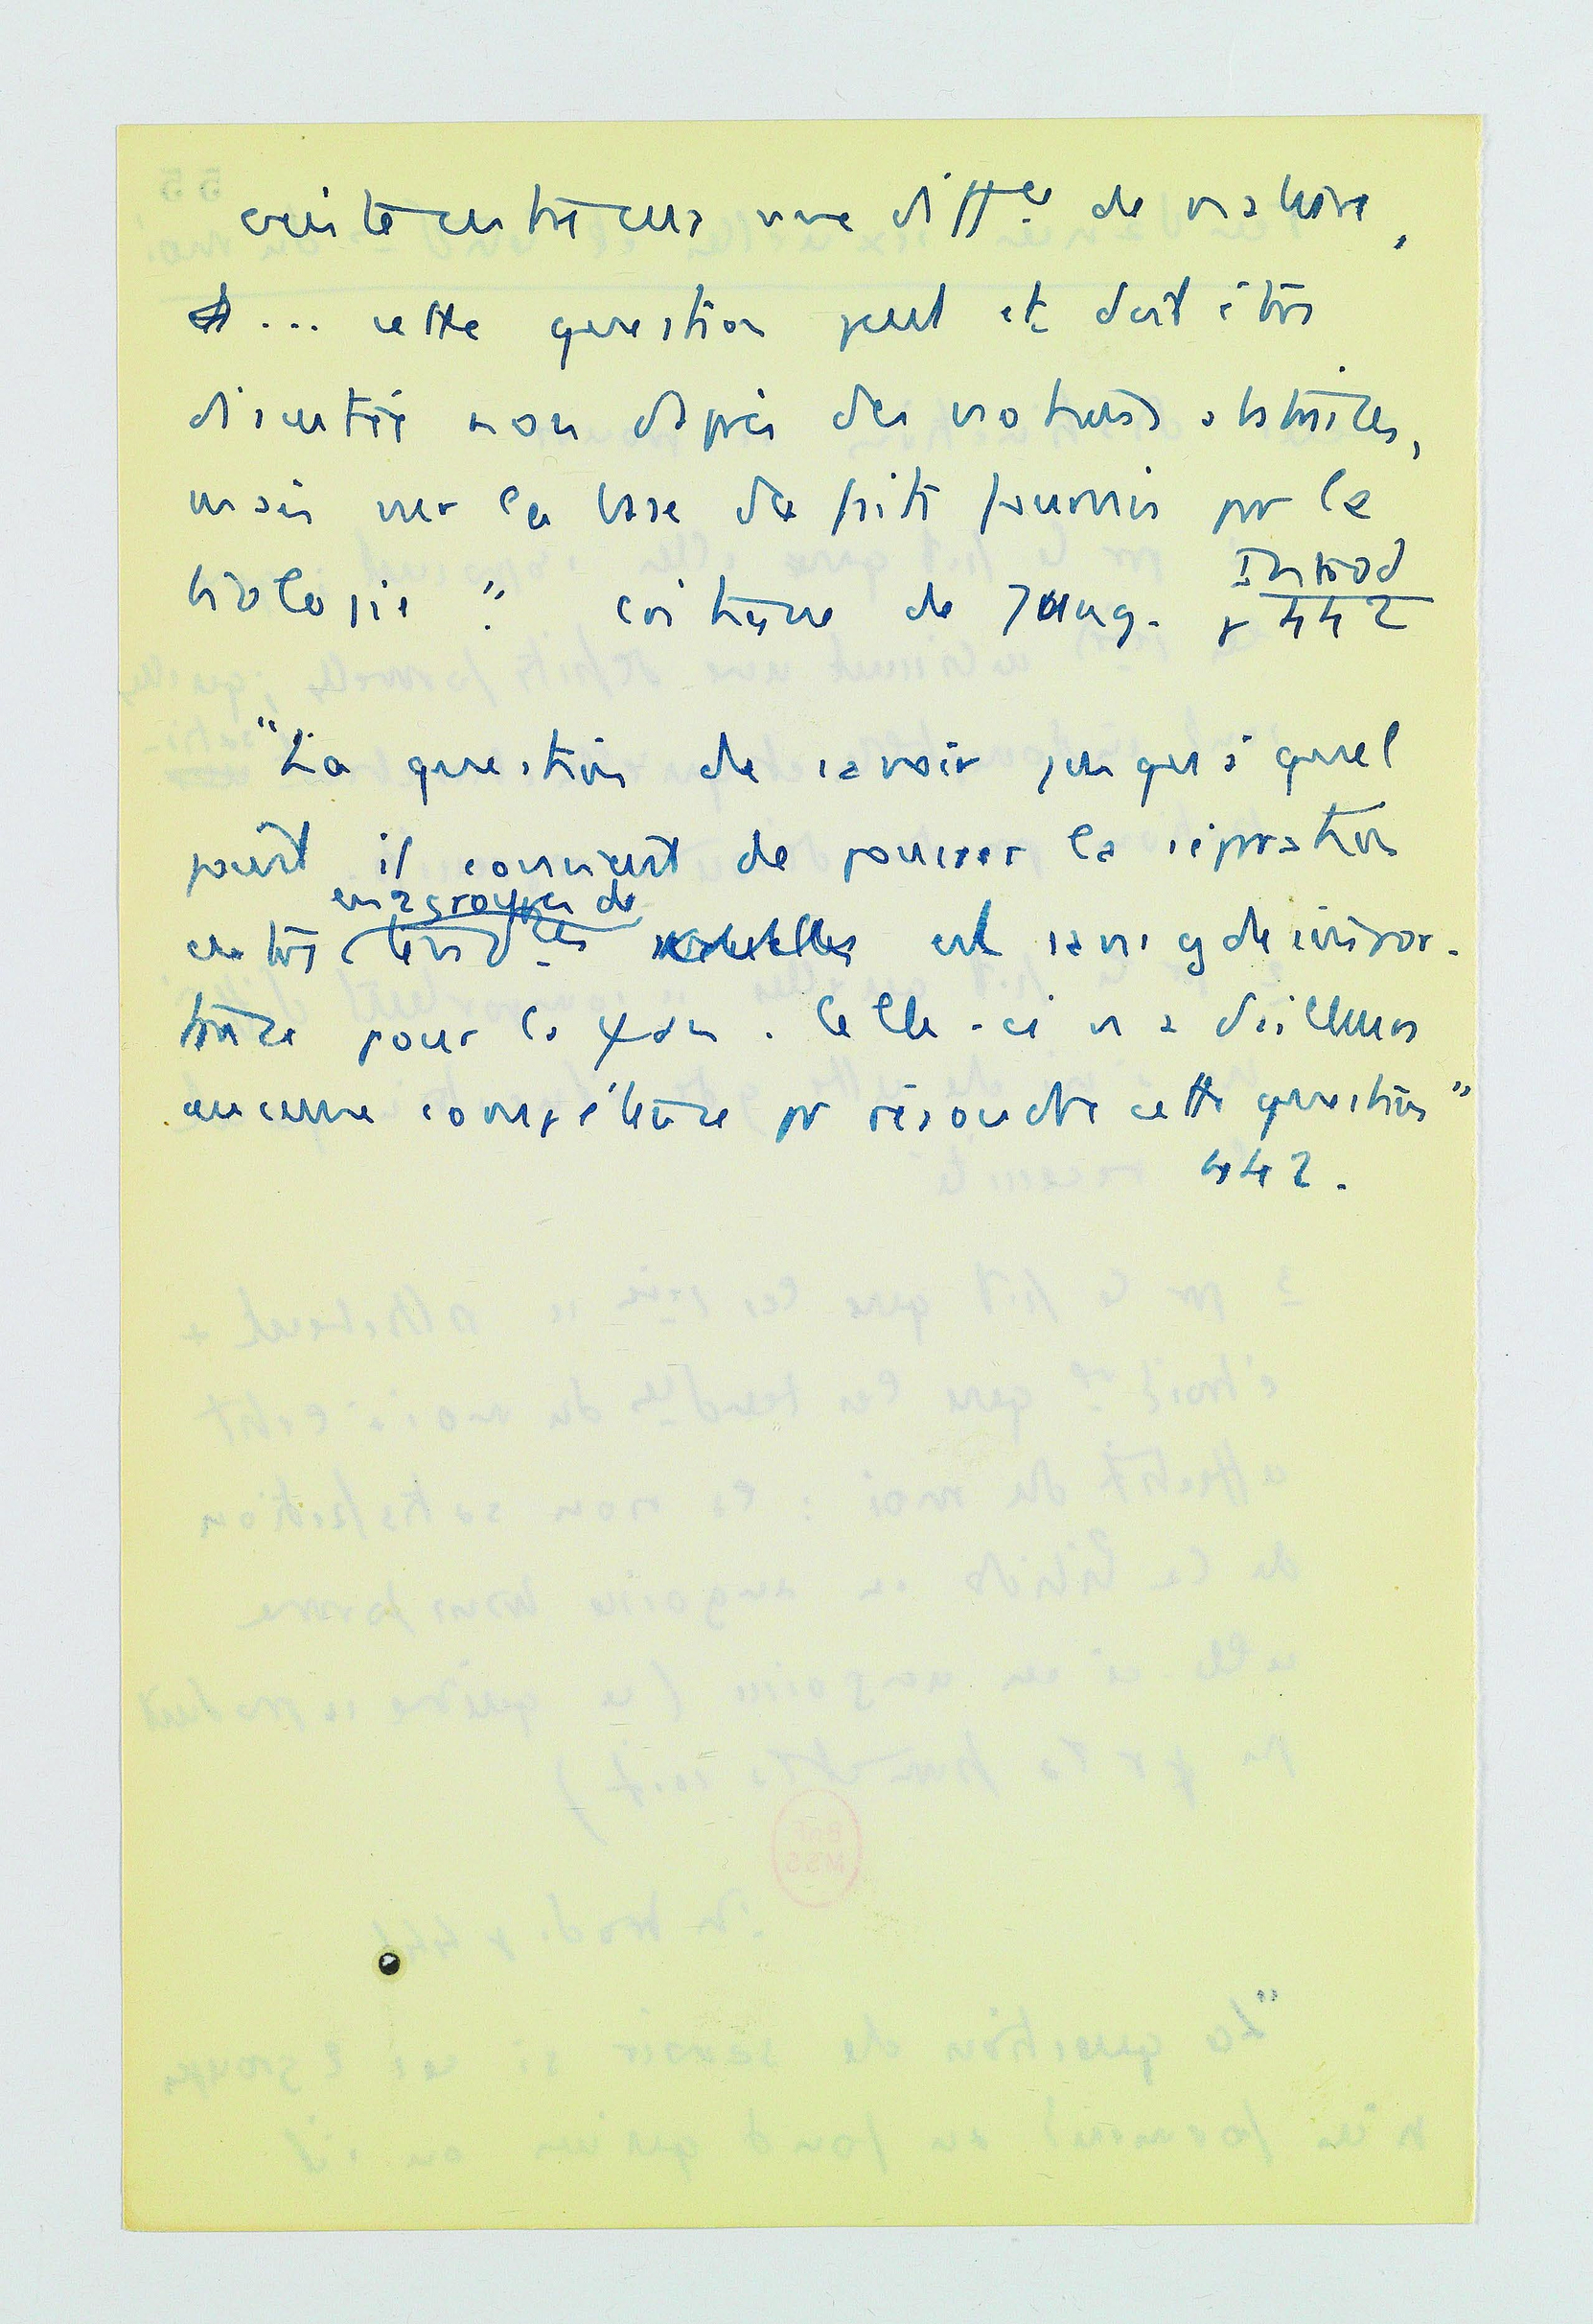 existe entre eux une diffce de nature,
... cette question peut et doit être
discutée non d'après des notions abstraites,
mais sur la base des faits fournis par la
biologie". critique de Jung. Introd
p 442
"La question de savoir jusqu'à quel
point il convient de pousser la séparation
entre les 2 groupes de
tendces est sans gde impor-
tance pour la ψan. Celle-ci n'a d'ailleurs
aucune compétence pr résoudre cette question"
442.